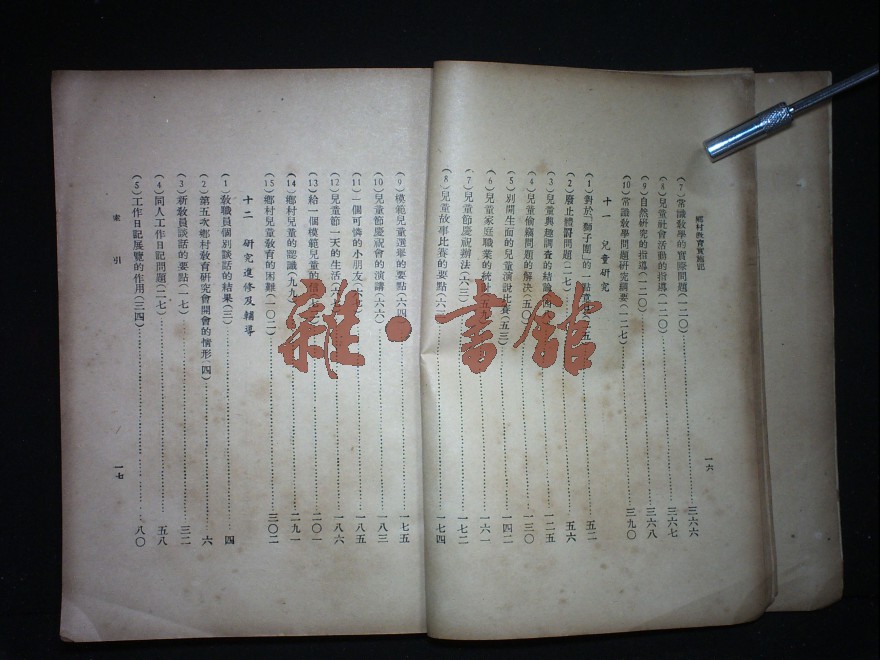 鄉村教育實施記
一六
(7)常識教學的實際問題(一二〇)……三六六
(8)兒童社會活動的指導(一二〇)……三六七
(9)自然研究的指導(一二〇)……三六八
(10)常識教學問題研究綱要(一二七)……三九〇
十一 兒童研究
(1)對於「獅子團」的一點責任……五二
(2)廢止體罰問題(二七)……五六
(3)兒童興趣調查的結論……一二五
(4)兒童偷竊問題的解決(五〇)……一三〇
(5)別開生面的兒童演說比賽(五三)……一四二
(6)兒童家庭職業的……一六一
(7)兒童節慶祝辦法(六三)……一七二
(8)兒童故事比賽的要點(六……一七四
(9)模範兒童選舉的要點(六四……一七五
(10)兒童節慶祝會的演講(六六)……一八三
(11)一個可憐的小朋友……一八五
(12)兒童節一天的生活……一八六
(13)給一個模範兒童的信……二〇一
(14)鄉村兒童的認識(九九)……二九一
(15)鄉村兒童教育的困難(一〇二)……三〇二
十二 研究進修及輔導
(1)教職員個別談話的結果(三)……四
(2)第五次鄉村教育研究會開會的情形(四)……六
(3)新教員談話的要點(一七)……三二
(4)同人工作日記問題(二七)……五八
(5)工作日記展覽的作用(三四)……八〇
索引
一七
雜·書館